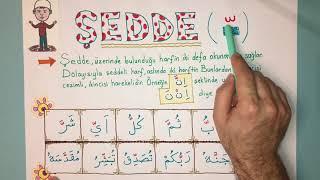 ŞEDDE ( ّ )
→ Şedde, üzerinde bulunduğu harfin iki defa okunmasını sağlar.
Dolayısıyla şeddeli harf, aslında iki harftir. Bunlardan
cezimli, ikincisi harekelidir. Örneğin اِنَّ şeklinde
اِنْنَ diye
بُّ ثُمَّ كُلُّ اَيُّ شَرَّ
جَنَّةُ رَبُّكُمْ نُصَدِّقُ تُبَشِّرُ مُقَدَّسَةُ